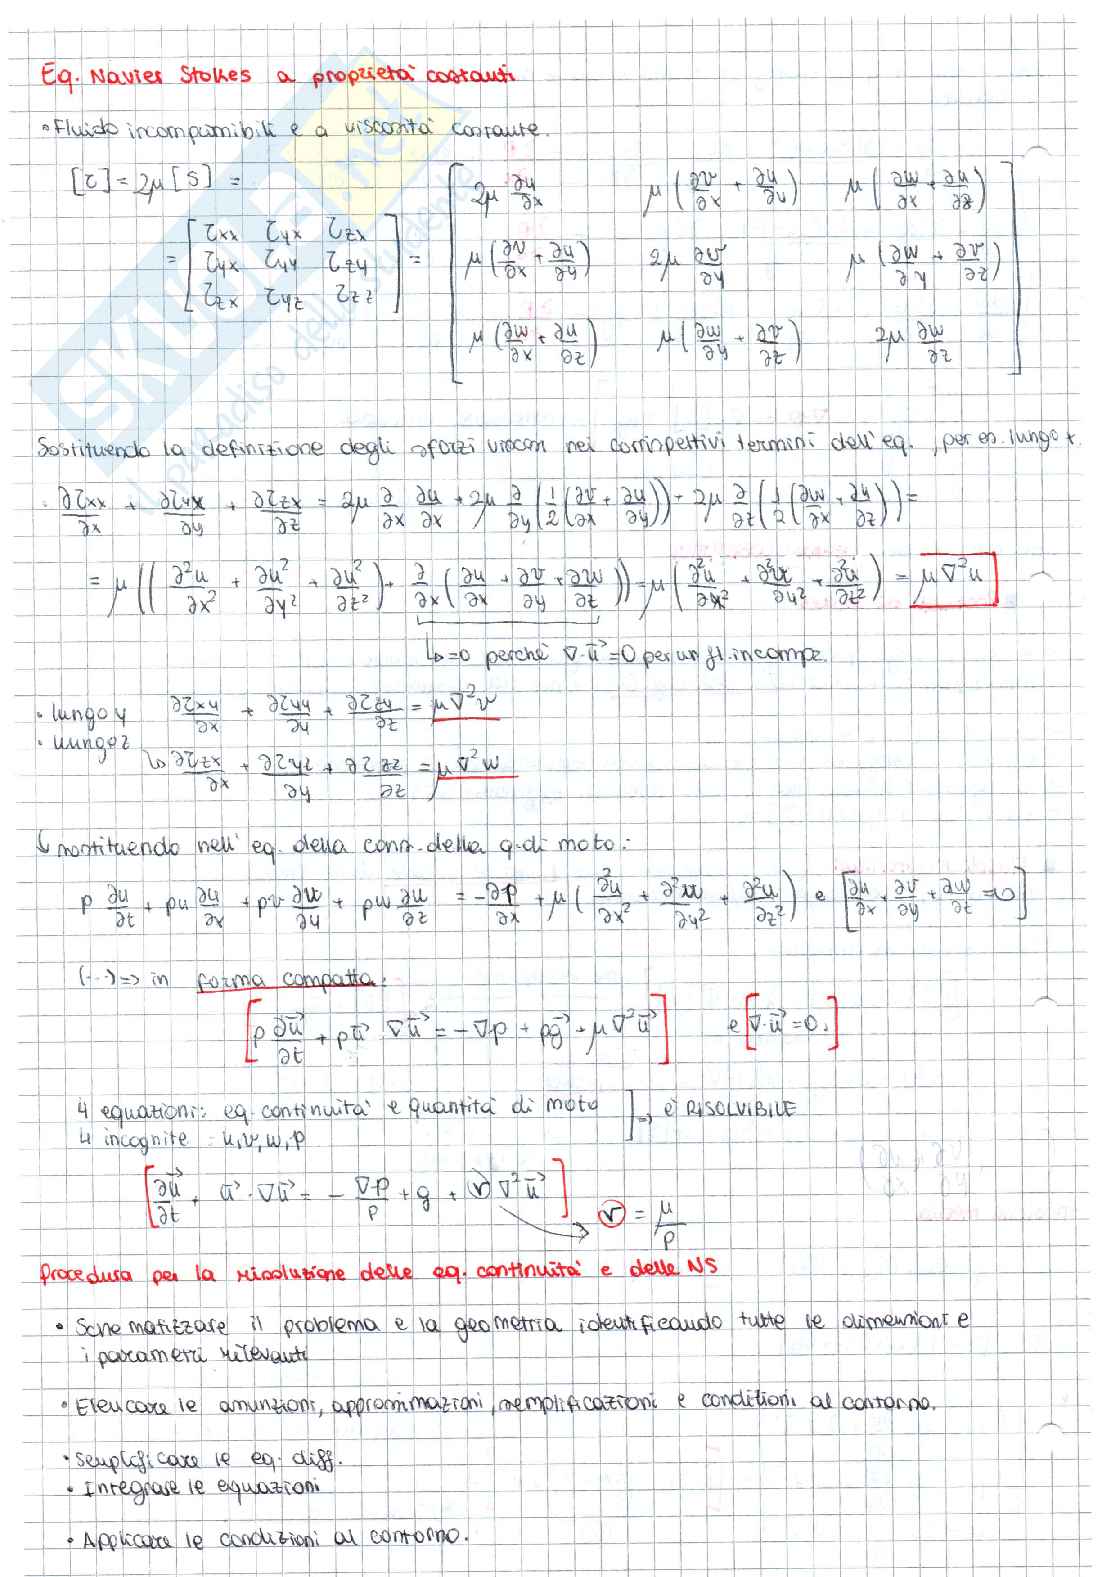 Eq. Navier Stokes a proprietà costanti
• Fluido incomprimibili e a viscosità costante.
[τ] = 2μ [S] =
= [ τxx τyx τzx ; τyx τyy τzy ; τzx τyz τzz ] = [ 2μ ∂u/∂x μ(∂v/∂x + ∂u/∂y) μ(∂w/∂x + ∂u/∂z) ; μ(∂v/∂x + ∂u/∂y) 2μ ∂v/∂y μ(∂w/∂y + ∂v/∂z) ; μ(∂w/∂x + ∂u/∂z) μ(∂w/∂y + ∂v/∂z) 2μ ∂w/∂z ]
Sostituendo la definizione degli sforzi viscosi nei corrispettivi termini dell'eq., per es. lungo x.
∂τxx/∂x + ∂τyx/∂y + ∂τzx/∂z = 2μ ∂/∂x ∂u/∂x + 2μ ∂/∂y (1/2 (∂v/∂x + ∂u/∂y)) + 2μ ∂/∂z (1/2 (∂w/∂x + ∂u/∂z)) =
= μ((∂²u/∂x² + ∂u²/∂y² + ∂u²/∂z²) + ∂/∂x (∂u/∂x + ∂v/∂y + ∂w/∂z)) = μ(∂²u/∂x² + ∂²u/∂y² + ∂²u/∂z²) = μ∇²u
↳ =0 perché ∇·u⃗ = 0 per un fl. incompr.
• lungo y ∂τxy/∂x + ∂τyy/∂y + ∂τzy/∂z = μ∇²v
• lungo z
↳ ∂τxz/∂x + ∂τyz/∂y + ∂τzz/∂z = μ∇²w
↓ sostituendo nell'eq. della cons. della q. di moto:
ρ ∂u/∂t + ρu ∂u/∂x + ρv ∂u/∂y + ρw ∂u/∂z = -∂p/∂x + μ(∂²u/∂x² + ∂²u/∂y² + ∂²u/∂z²) e [∂u/∂x + ∂v/∂y + ∂w/∂z = 0]
(...) => in forma compatta:
[ρ ∂u⃗/∂t + ρu⃗·∇u⃗ = -∇p + ρg⃗ + μ∇²u⃗] e [∇·u⃗ = 0.]
4 equazioni: eq. continuità e quantità di moto ] → è RISOLVIBILE
4 incognite: u, v, w, p
[∂u⃗/∂t + u⃗·∇u⃗ = -∇p/ρ + g + ν∇²u⃗] ν = μ/ρ
Procedura per la risoluzione delle eq. continuità e delle NS
• Schematizzare il problema e la geometria identificando tutte le dimensioni e
i parametri rilevanti
• Elencare le assunzioni, approssimazioni, semplificazioni e condizioni al contorno.
• Semplificare le eq. diff.
• Integrare le equazioni
• Applicare le condizioni al contorno.
SKUOLA.net
il paradiso dello studente